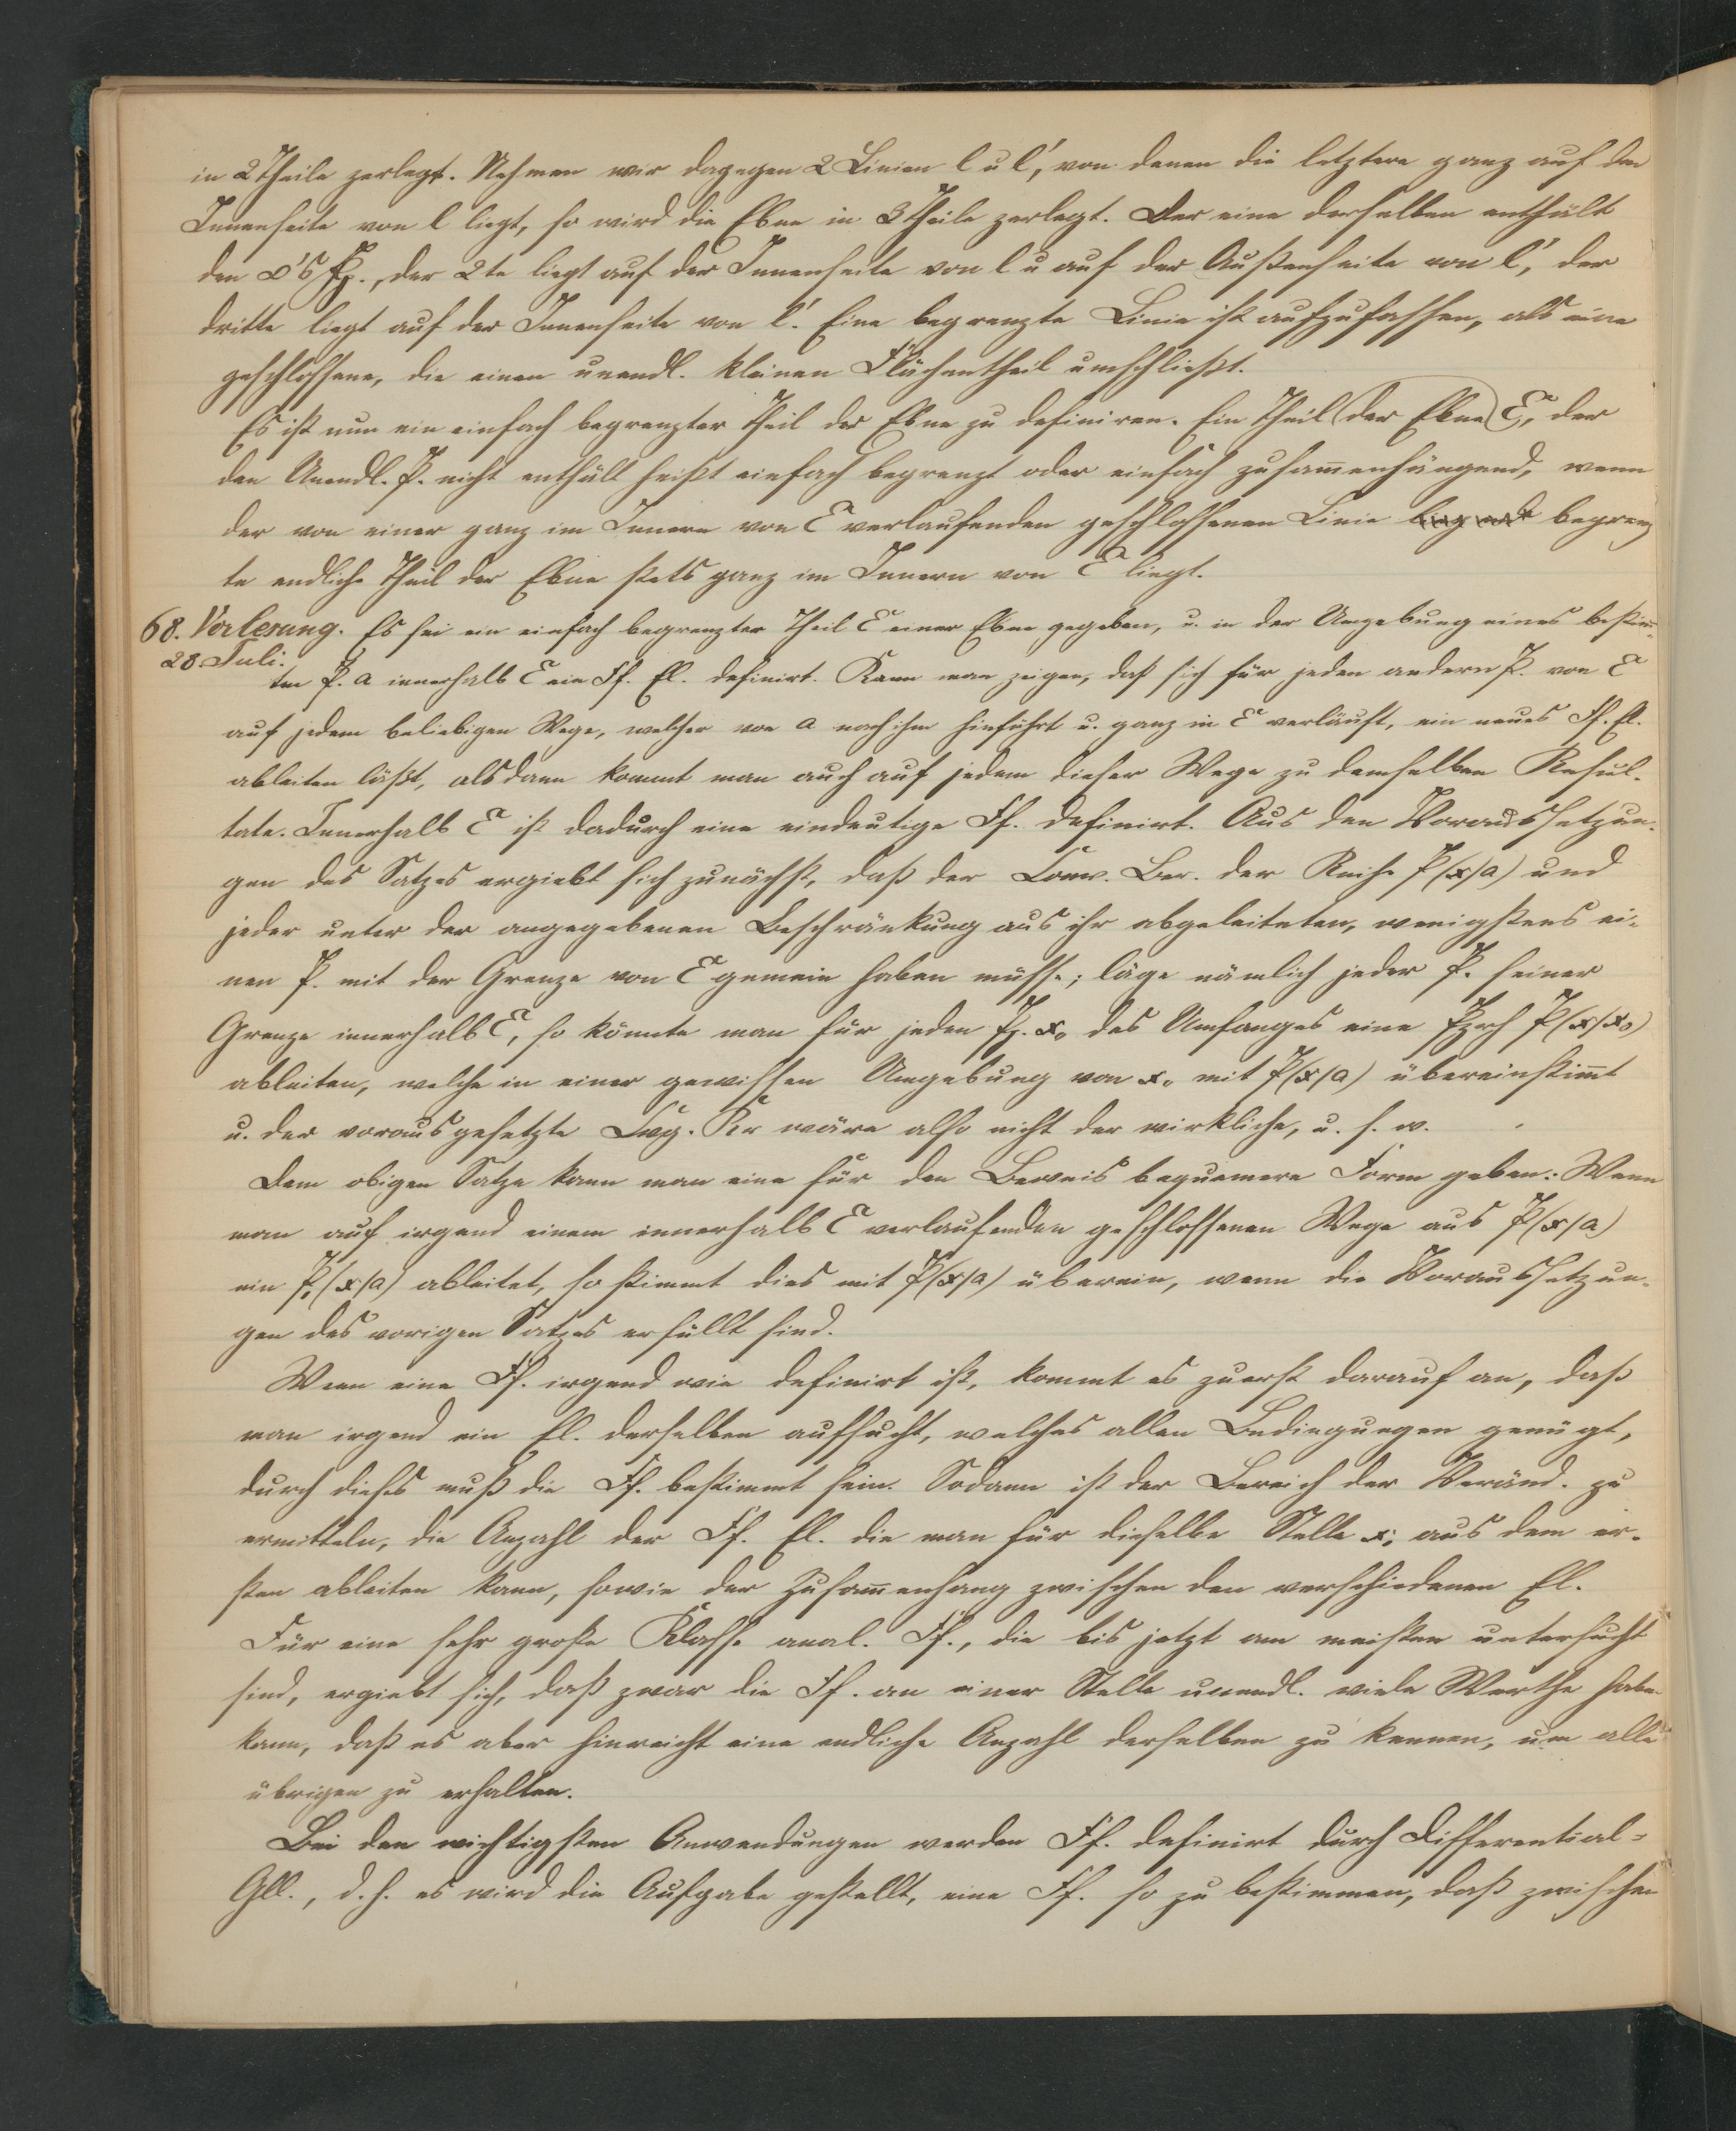 in 2 Theile zerlegt. Nehmen wir dagegen 2 Linien l u l', von denen die letztere ganz auf der
Innenseite von l liegt, so wird die Ebne in 3 Theile zerlegt. Der eine derselben enthält
den ∞'s Pp., der 2te liegt auf der Innenseite von l u auf der Außenseite von l', der
dritte liegt auf der Innenseite von l'. Eine begrenzte Linie ist aufzufassen, als eine
geschlossene, die einen unendl. kleinen Flächentheil umschließt.
Es ist nun ein einfach begrenzter Theil der Ebne zu definiren. Ein Theil (der Ebne) E, der
den Unendl. P. nicht enthält heißt einfach begrenzt oder einfach zusam̄enhängend, wenn
der von einer ganz im Innern von E verlaufenden geschlossenen Linie begrenz
te endliche Theil der Ebne stets ganz im Innern von E liegt.
68. Vorlesung. Es sei ein einfach begrenzter Theil E einer Ebne gegeben, u. in der Umgebung eines bestim̄-
28. Juli.
ten P. a innerhalb E ein Ff. El. definirt. Kann man zeigen, daß sich für jeden andern P. von E
auf jedem beliebigen Wege, welcher von a nach ihm hinführt u. ganz in E verläuft, ein neues Ff. El.
ableiten läßt, alsdann kommt man auch auf jedem dieser Wege zu demselben Resul-
tate. Innerhalb E ist dadurch eine eindeutige Ff. definirt. Aus den Voraussetzun-
gen des Satzes ergiebt sich zunächst, daß der Conv. Ber. der Reihe P(x/a) und
jeder unter der angegebenen Beschränkung aus ihr abgeleiteten, wenigstens ei-
nen P. mit der Grenze von E gemein haben müsse; läge nämlich jeder P. seiner
Grenze innerhalb E, so könnte man für jeden P. x₀ des Umfanges eine Pzrh P(x/x₀)
ableiten, welche in einer gewissen Umgebung von x₀ mit P(x/a) übereinstim̄t
u. der vorausgesetzte Cvg. Kr wäre also nicht der wirkliche, u. s. w.
Dem obigen Satze kann man eine für den Beweis bequemere Form geben: Wenn
man auf irgend einem innerhalb E verlaufenden geschlossenen Wege aus P(x/a)
ein P₁(x/a) ableitet, so stimmt dies mit P(x/a) überein, wenn die Voraussetzun-
gen des vorigen Satzes erfüllt sind.
Wenn eine Ff. irgend wie definirt ist, kommt es zuerst darauf an, daß
man irgend ein El. derselben aufsucht, welches allen Bedingungen genügt,
durch dieses muß die Ff. bestimmt sein. Sodann ist der Bereich der Veränd. zu
ermitteln, die Anzahl der Ff. El. die man für dieselbe Stelle x, aus dem er-
sten ableiten kann, sowie der Zusam̄enhang zwischen den verschiedenen El.
Für eine sehr große Klasse anal. Ff., die bis jetzt am meisten untersucht
sind, ergiebt sich, daß zwar die Ff. an einer Stelle unendl. viele Werthe haben
kann, daß es aber hinreicht eine endliche Anzahl derselben zu kennen, um alle
übrigen zu erhalten.
Bei den wichtigsten Anwendungen werden Ff. definirt durch Differential-
Gll., d. h. es wird die Aufgabe gestellt, eine Ff. so zu bestimmen, daß zwischen